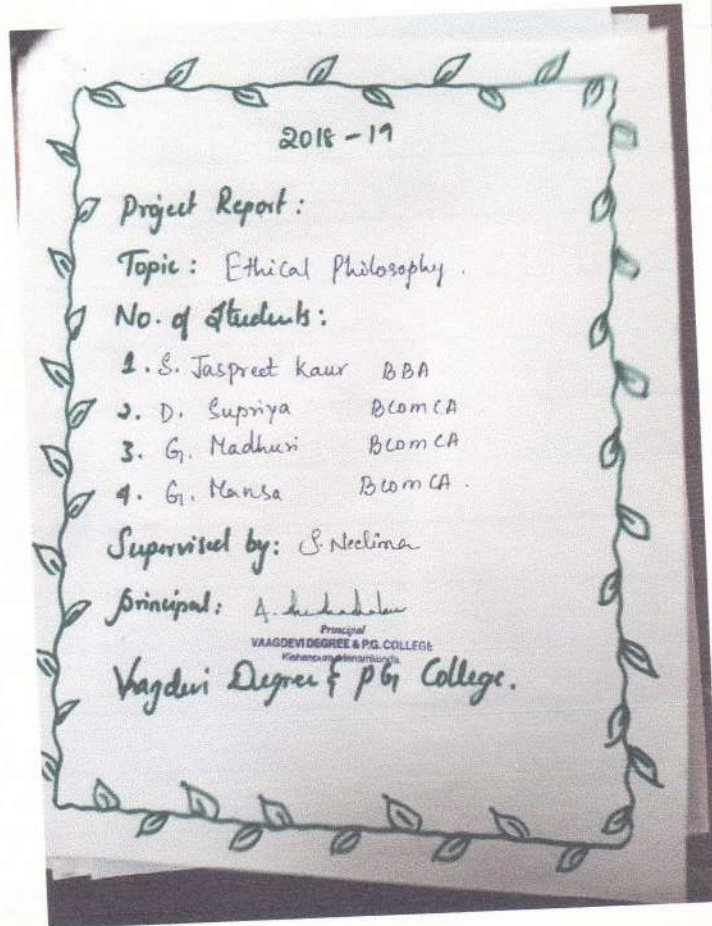 2018-19
Project Report:
Topic: Ethical Philosophy.
No. of Students:
1. S. Jaspreet Kaur BBA
2. D. Supriya BComCA
3. G. Madhuri BComCA
4. G. Mansa BComCA.
Supervised by: S. Neelima
Principal: A.
Principal
VAAGDEVI DEGREE & P.G. COLLEGE
Kishanpura, Hanamkonda.
Vaagdevi Degree & PG College.